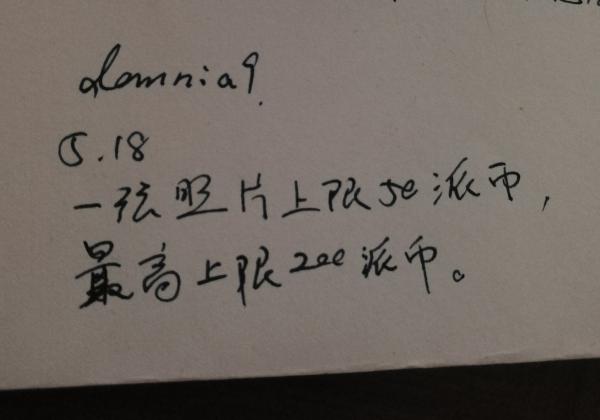 domnia9.
5.18
一张照片上限50派币，
最高上限200派币。